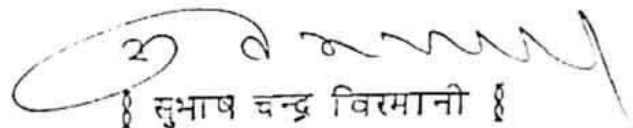 § सुभाष चन्द्र विरमानी §